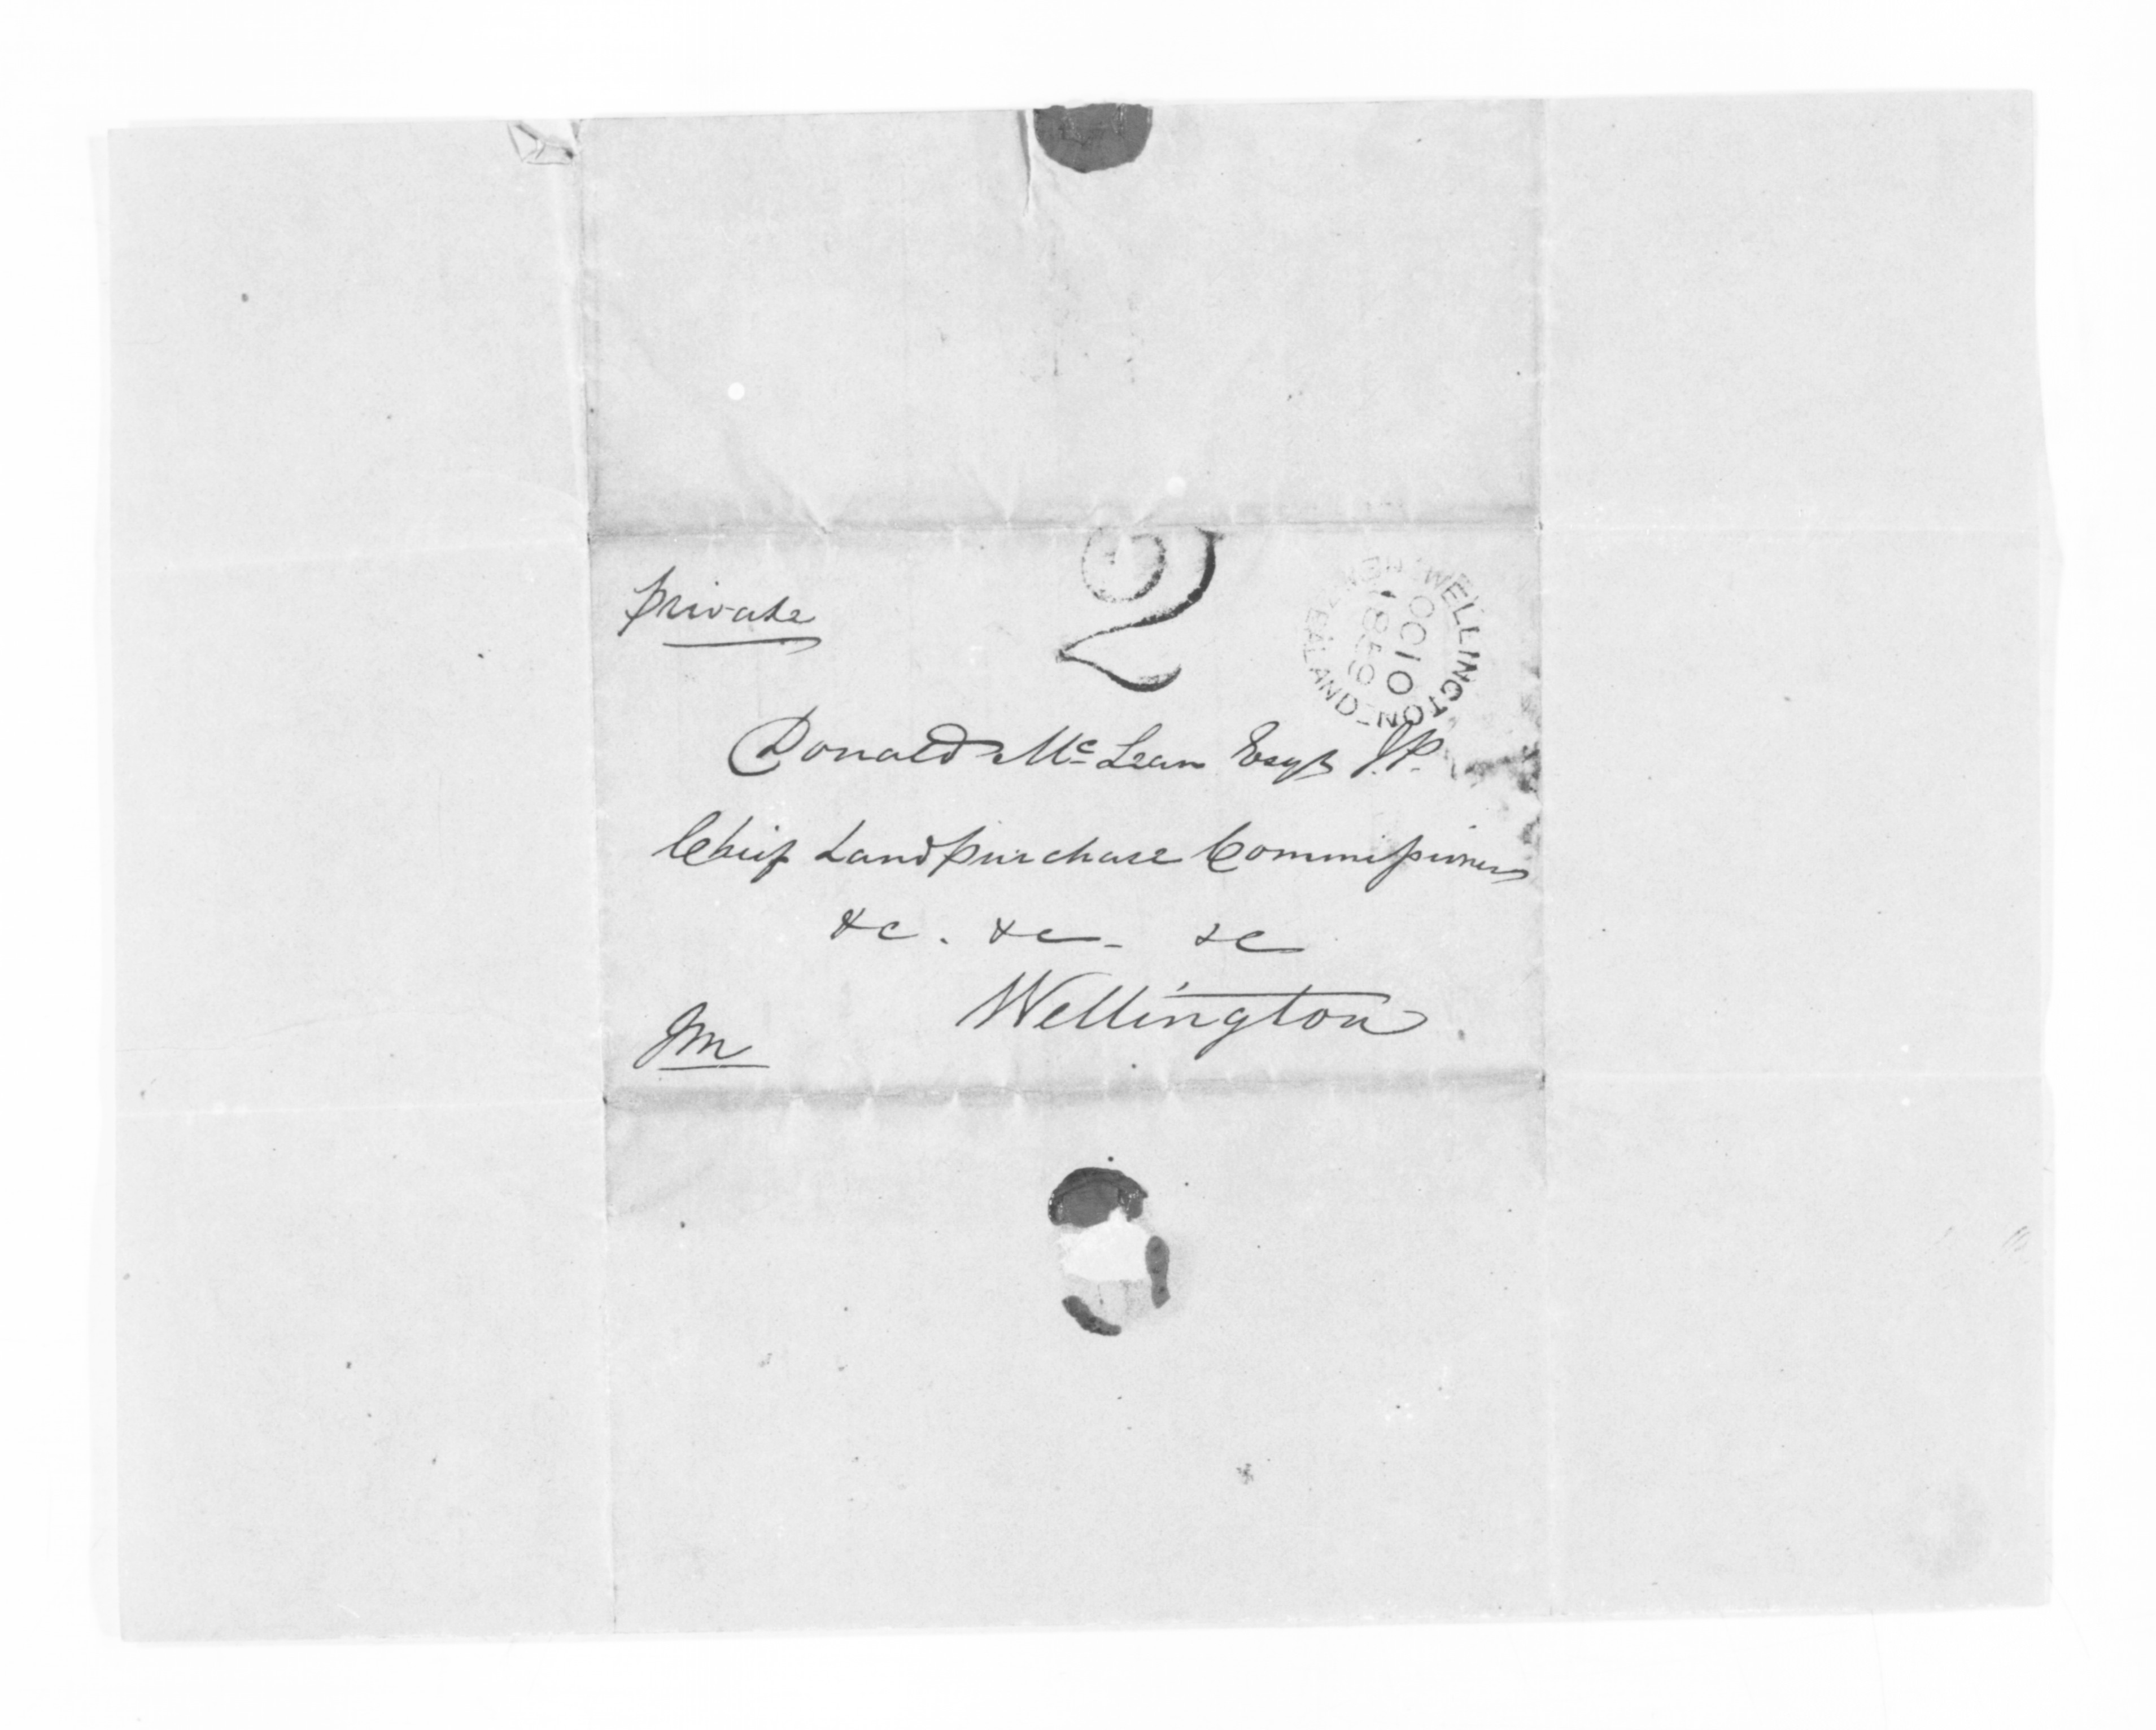 private
2
WELLINGTON
NEW ZEALAND
OC 10
Donald Mc Lean Esqr J.P.
Chief Land purchase Commissioner
&c. &c - &c
Wellington
JM